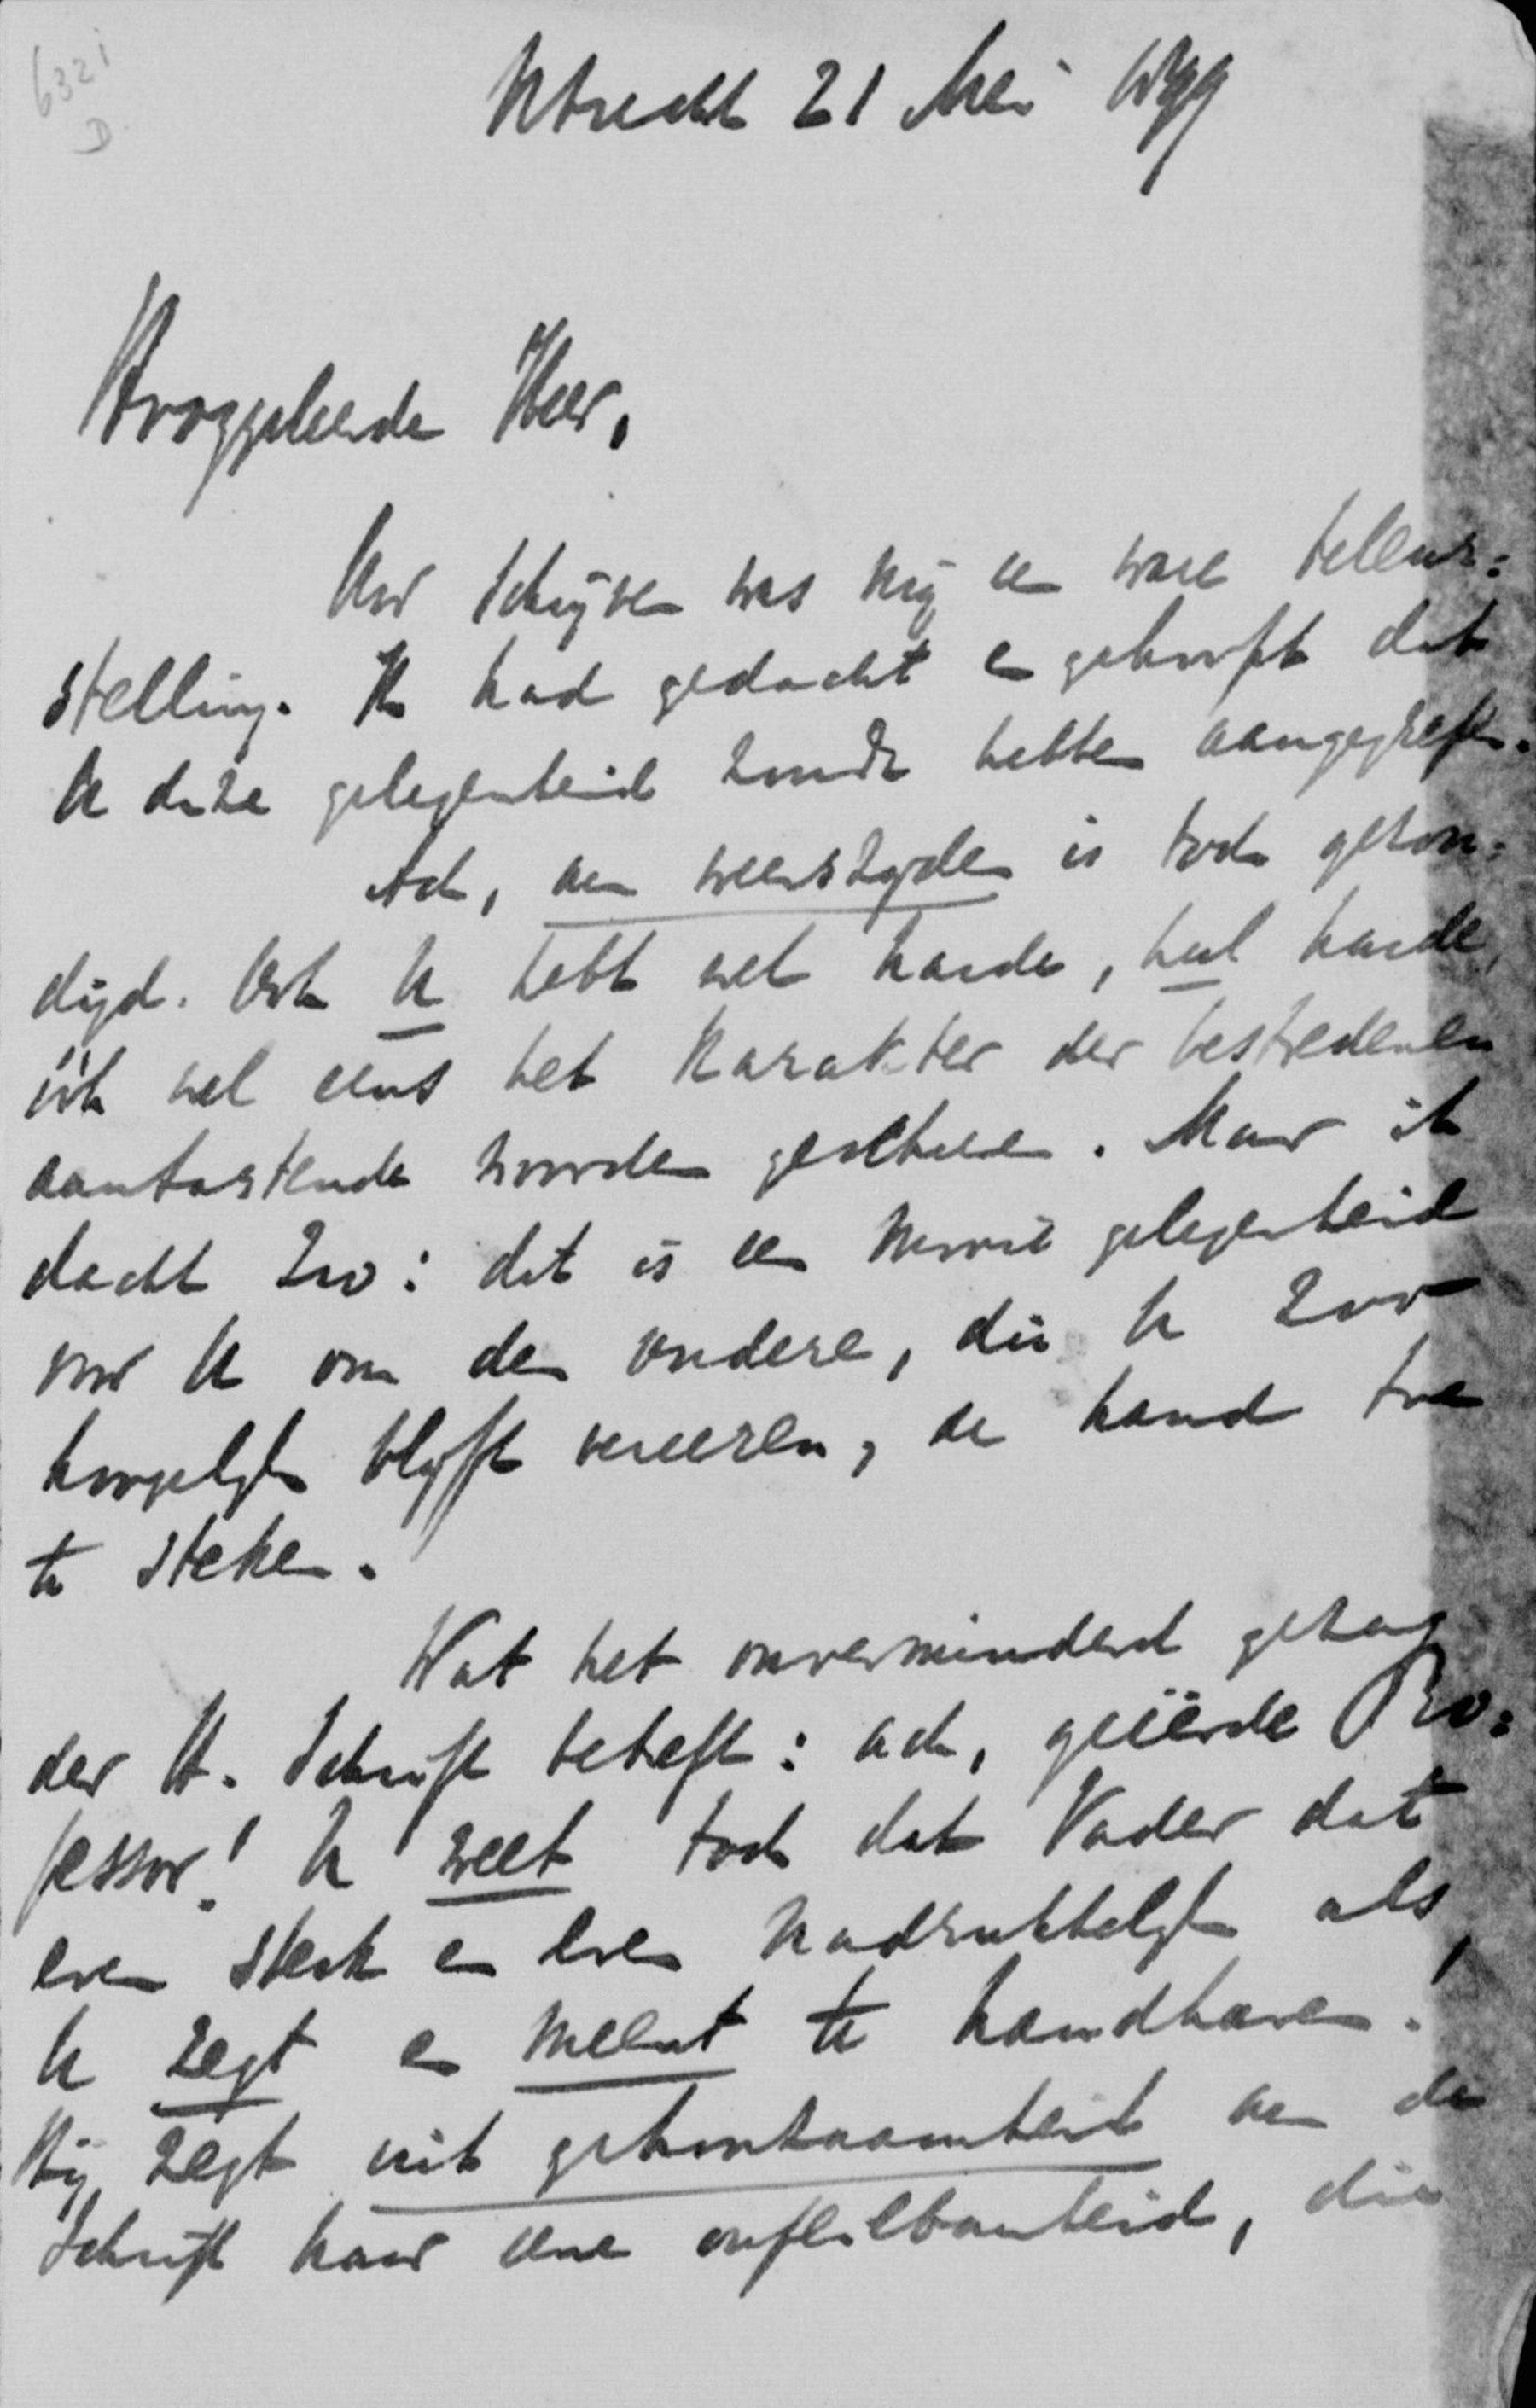 632i
D
Utrecht 21 Mei 1899
Hooggeleerde Heer,
Uw schrijven was mij een ware teleur=
stelling. Ik had gedacht en gehoopt dat
U deze gelegenheid zoudt hebben aangegrepen.
Ach, aan weerszijden is toch gezon=
digd. Ook U hebt wel harde, heel harde,
ook wel eens het karakter der bestredenen
aantastende woorden geschreven. Maar ik
dacht zoo: dit is een mooie gelegenheid
voor U om den oudere, die U zoo
hoogelijk blijft vereeren, de hand toe
te steken.
Wat het onverminderd gezag
der H. Schrift betreft: ach, geëerde Pro=
fessor! U weet toch dat Vader dat
even sterk en even nadrukkelijk als
U zegt en meent te handhaven!
Hij zegt uit gehoorzaamheid aan de
Schrift haar eene onfeilbaarheid, die